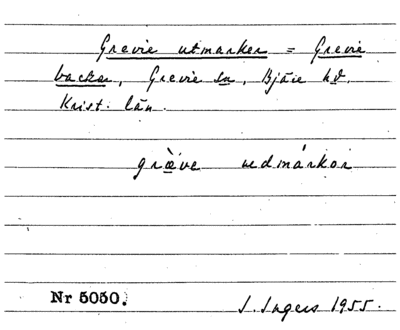 Grevie utmarker = Grevie
backar, Grevie sn, Bjäre hd.
Krist. län.
græ̀ve udmárkor
Nr 5050.
I. Ingers 1955.